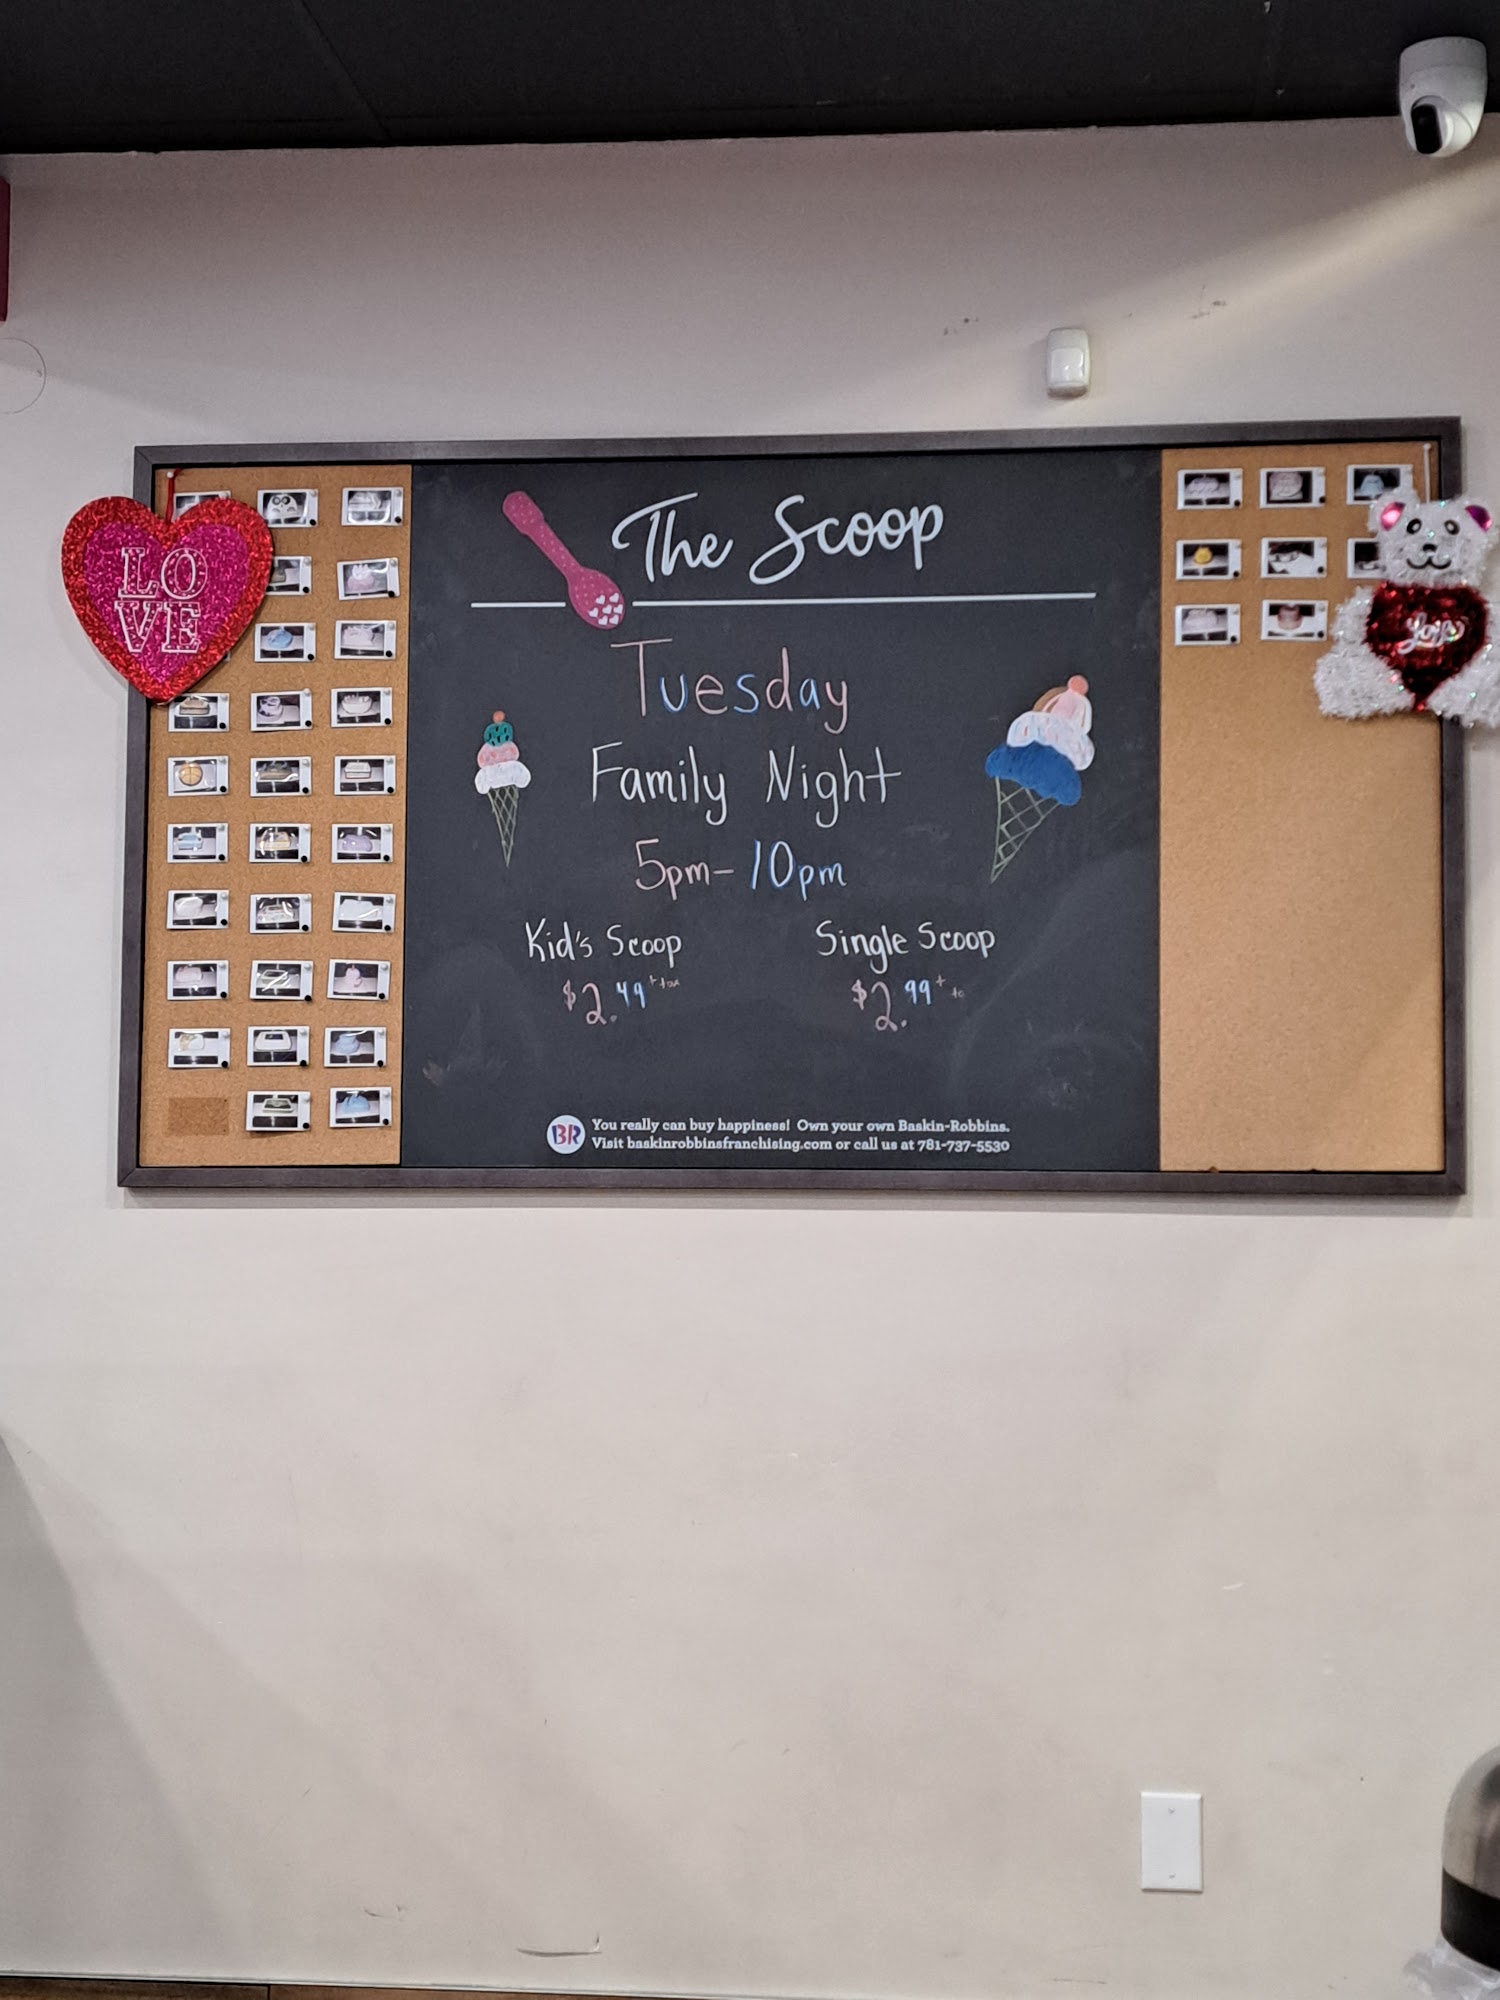 The Scoop
LO
VE
Tuesday
Family Night
5pm-10pm
Kid's Scoop
$2.49 + tax
Single Scoop
$2.99 +
BR
You really can buy happiness! Own your own Baskin-Robbins.
Visit baskinrobbinsfranchising.com or call us at 781-737-5530